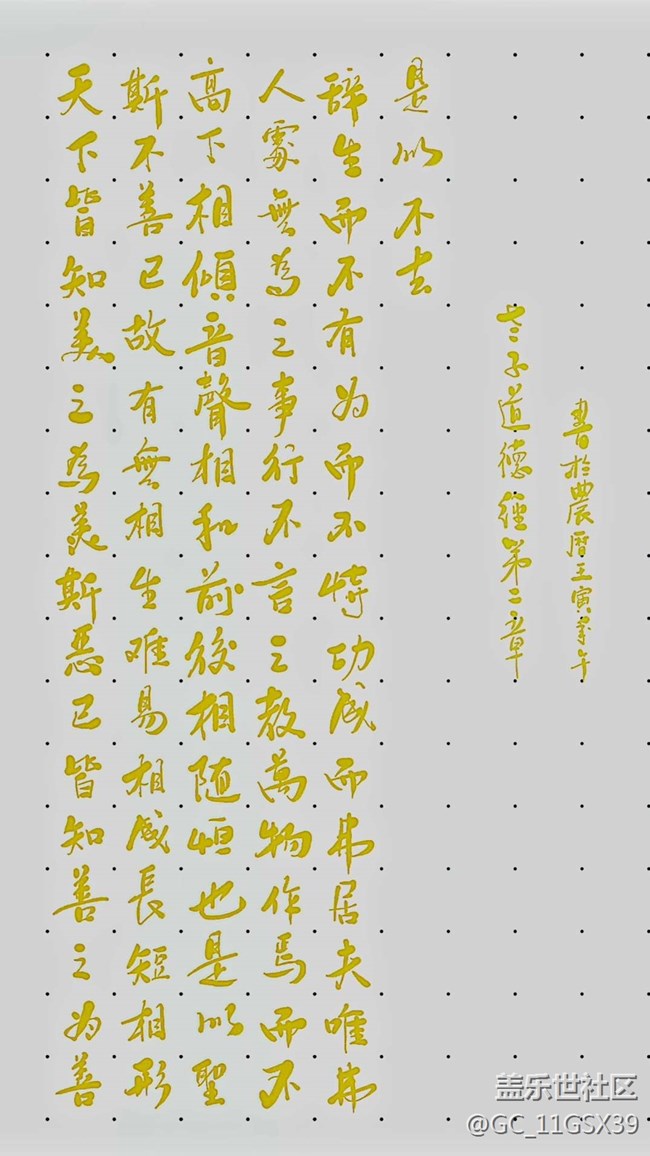 天下皆知美之為美斯恶已皆知善之为善
斯不善已故有無相生难易相成長短相形
高下相傾音聲相和前後相随恒也是以聖
人處無為之事行不言之教萬物作焉而不
辞生而不有为而不恃功成而弗居夫唯弗
是以不去
老子道德經第二章
書於農曆壬寅午
盖乐世社区
@GC_11GSX39